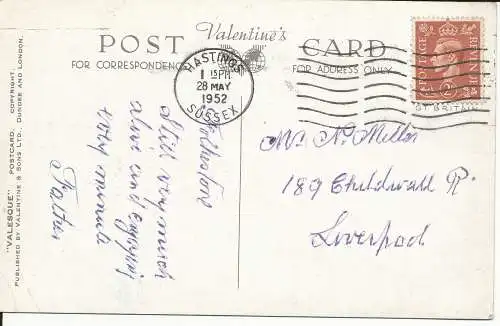 POST
Valentine's
CARD
FOR CORRESPONDENCE
FOR ADDRESS ONLY
HASTINGS
1 15 PM
28 MAY
1952
SUSSEX
POSTAGE
REVENUE
"VALESQUE" POSTCARD. COPYRIGHT.
PUBLISHED BY VALENTINE & SONS LTD. DUNDEE AND LONDON.
Folkestone
Still very much
alive and enjoying
every minute
Father
Mr N. Mellor
189 Childwall R.
Liverpool